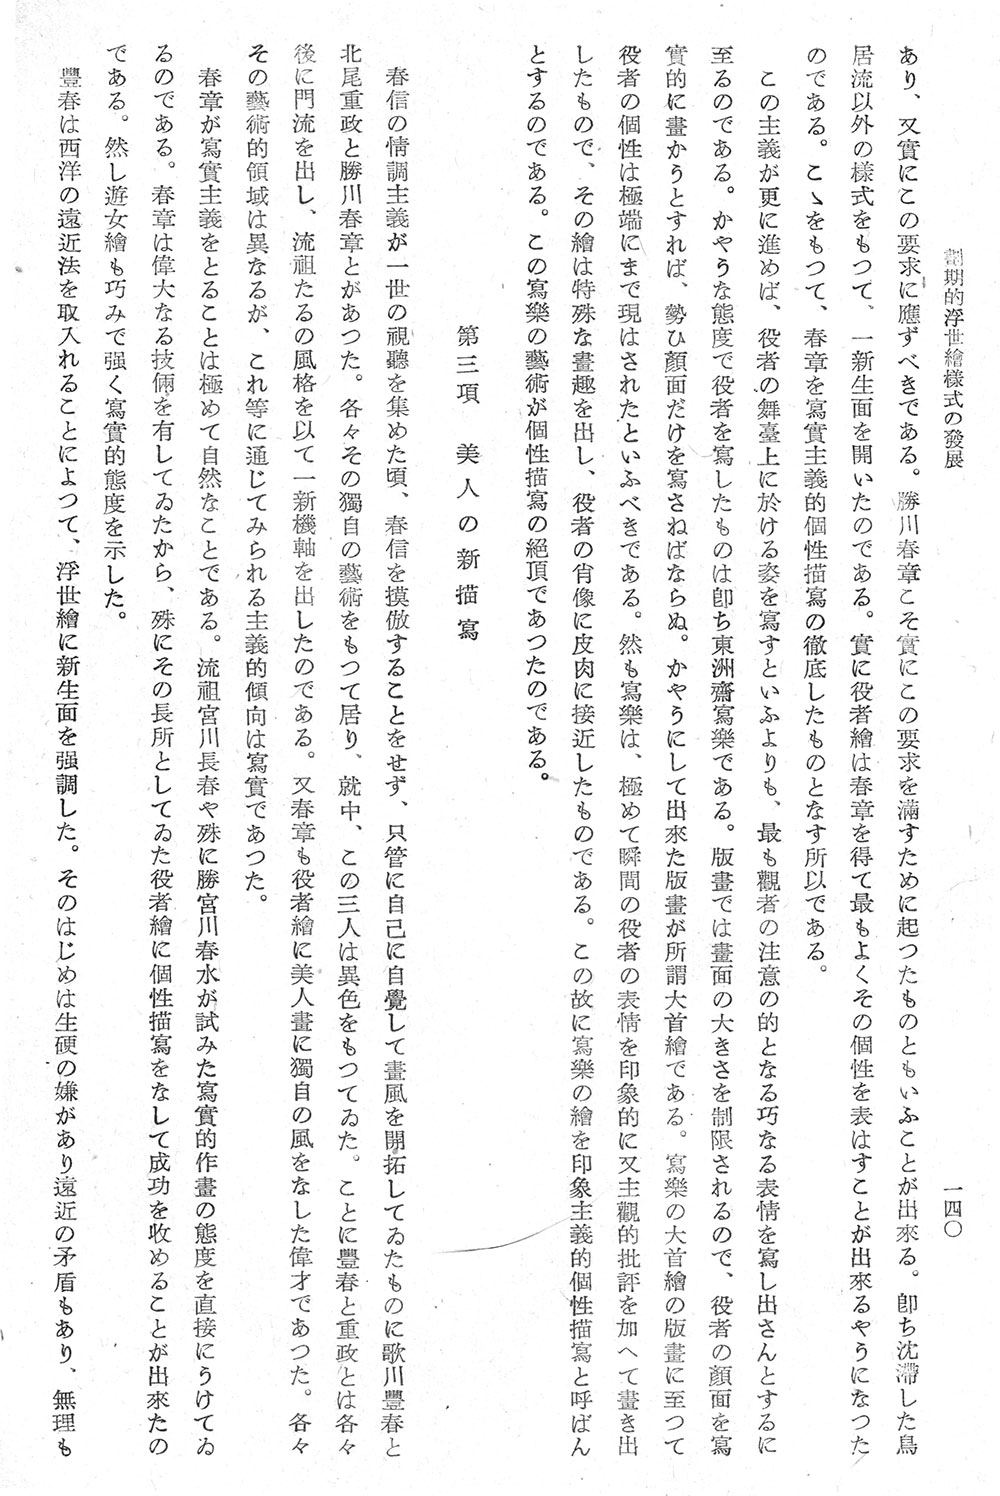 劃期的浮世繪樣式の發展
一四〇
あり、又實にこの要求に應ずべきである。勝川春章こそ實にこの要求を滿すために起つたものともいふことが出來る。卽ち沈滯した鳥
居流以外の樣式をもつて、一新生面を開いたのである。實に役者繪は春章を得て最もよくその個性を表はすことが出來るやうになつた
のである。こゝをもつて、春章を寫實主義的個性描寫の徹底したものとなす所以である。
この主義が更に進めば、役者の舞臺上に於ける姿を寫すといふよりも、最も觀者の注意の的となる巧なる表情を寫し出さんとするに
至るのである。かやうな態度で役者を寫したものは卽ち東洲齋寫樂である。版畫では畫面の大きさを制限されるので、役者の顏面を寫
實的に畫かうとすれば、勢ひ顏面だけを寫さねばならぬ。かやうにして出來た版畫が所謂大首繪である。寫樂の大首繪の版畫に至つて
役者の個性は極端にまで現はされたといふべきである。然も寫樂は、極めて瞬間の役者の表情を印象的に又主觀的批評を加へて畫き出
したもので、その繪は特殊な畫趣を出し、役者の肖像に皮肉に接近したものである。この故に寫樂の繪を印象主義的個性描寫と呼ばん
とするのである。この寫樂の藝術が個性描寫の絕頂であつたのである。
第三項　美人の新描寫
春信の情調主義が一世の視聽を集めた頃、春信を摸倣することをせず、只管に自己に自覺して畫風を開拓してゐたものに歌川豐春と
北尾重政と勝川春章とがあつた。各々その獨自の藝術をもつて居り、就中、この三人は異色をもつてゐた。ことに豐春と重政とは各々
後に門流を出し、流祖たるの風格を以て一新機軸を出したのである。又春章も役者繪に美人畫に獨自の風をなした偉才であつた。各々
その藝術的領域は異なるが、これ等に通じてみられる主義的傾向は寫實であつた。
春章が寫實主義をとることは極めて自然なことである。流祖宮川長春や殊に勝宮川春水が試みた寫實的作畫の態度を直接にうけてゐ
るのである。春章は偉大なる技倆を有してゐたから、殊にその長所としてゐた役者繪に個性描寫をなして成功を收めることが出來たの
である。然し遊女繪も巧みで强く寫實的態度を示した。
豐春は西洋の遠近法を取入れることによつて、浮世繪に新生面を强調した。そのはじめは生硬の嫌があり遠近の矛盾もあり、無理も